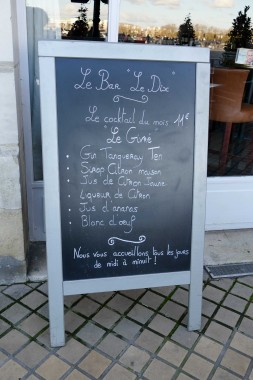 Le Bar "Le Dix"
Le cocktail du mois 11€
"Le Givré"
• Gin Tanqueray Ten
• Sirop Citron maison
• Jus de Citron Jaune
• Liqueur de Citron
• Jus d'ananas
• Blanc d'oeuf
Nous vous accueillons tous les jours
de midi à minuit!